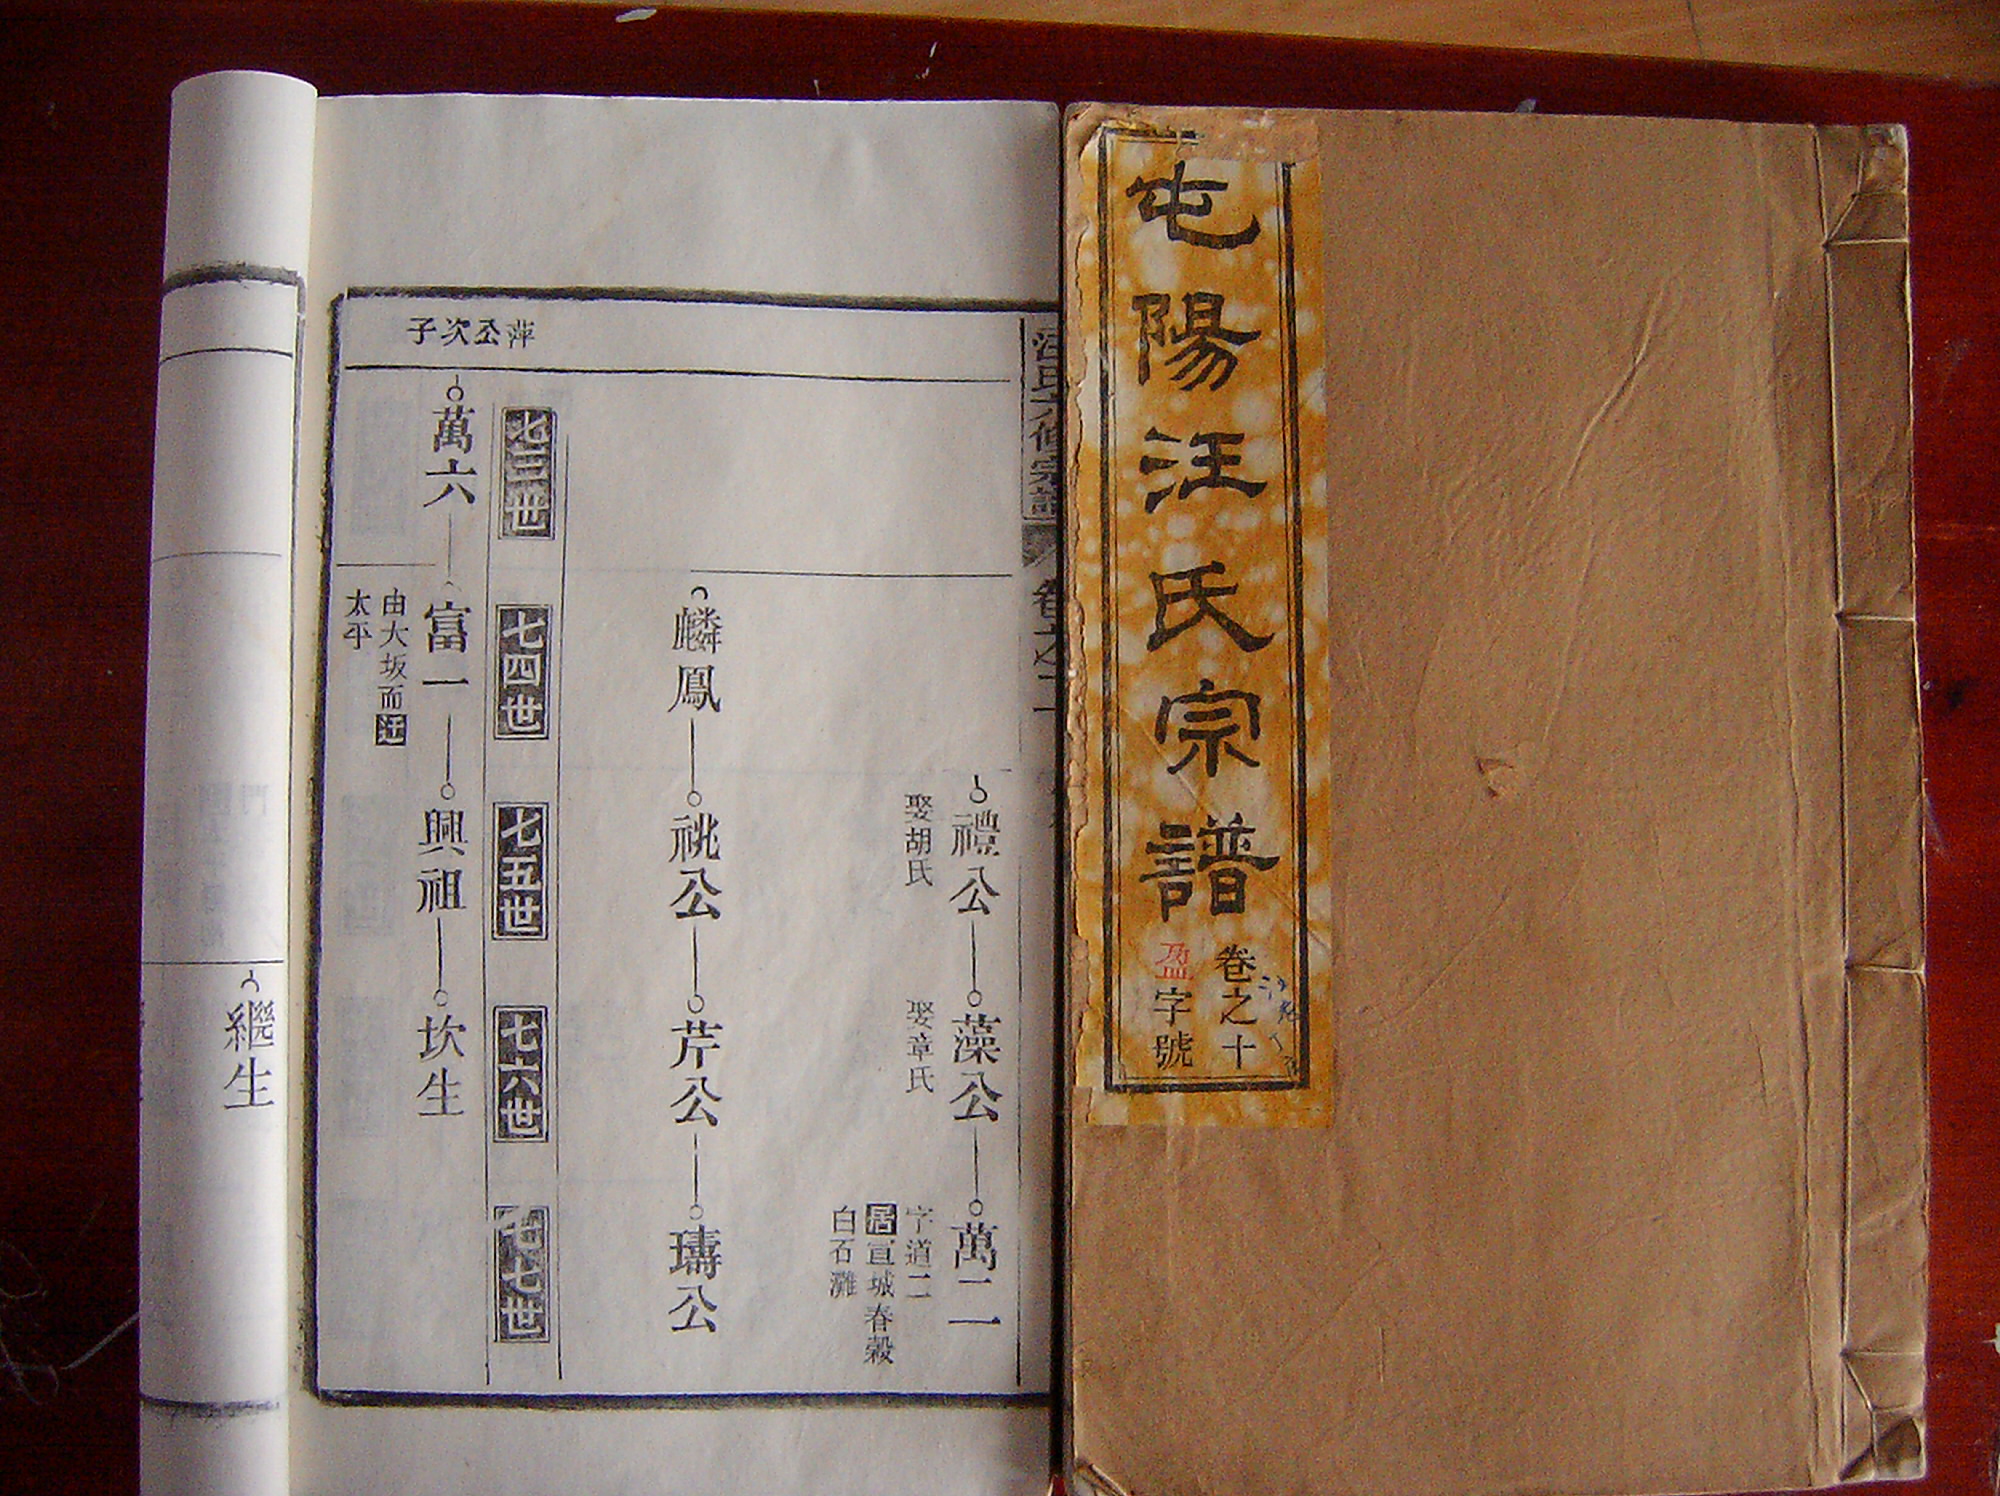 屯陽汪氏宗譜
卷之十
盈字號
汪氏六修宗譜
卷之二
禮公
娶胡氏
藻公
娶章氏
萬二
字道二
居宣城春穀
白石灘
麟鳳
祧公
芹公
璹公
七三世
七四世
七五世
七六世
七七世
萍公次子
萬六
富一
由大坂而迁
太平
興祖
坎生
繼生